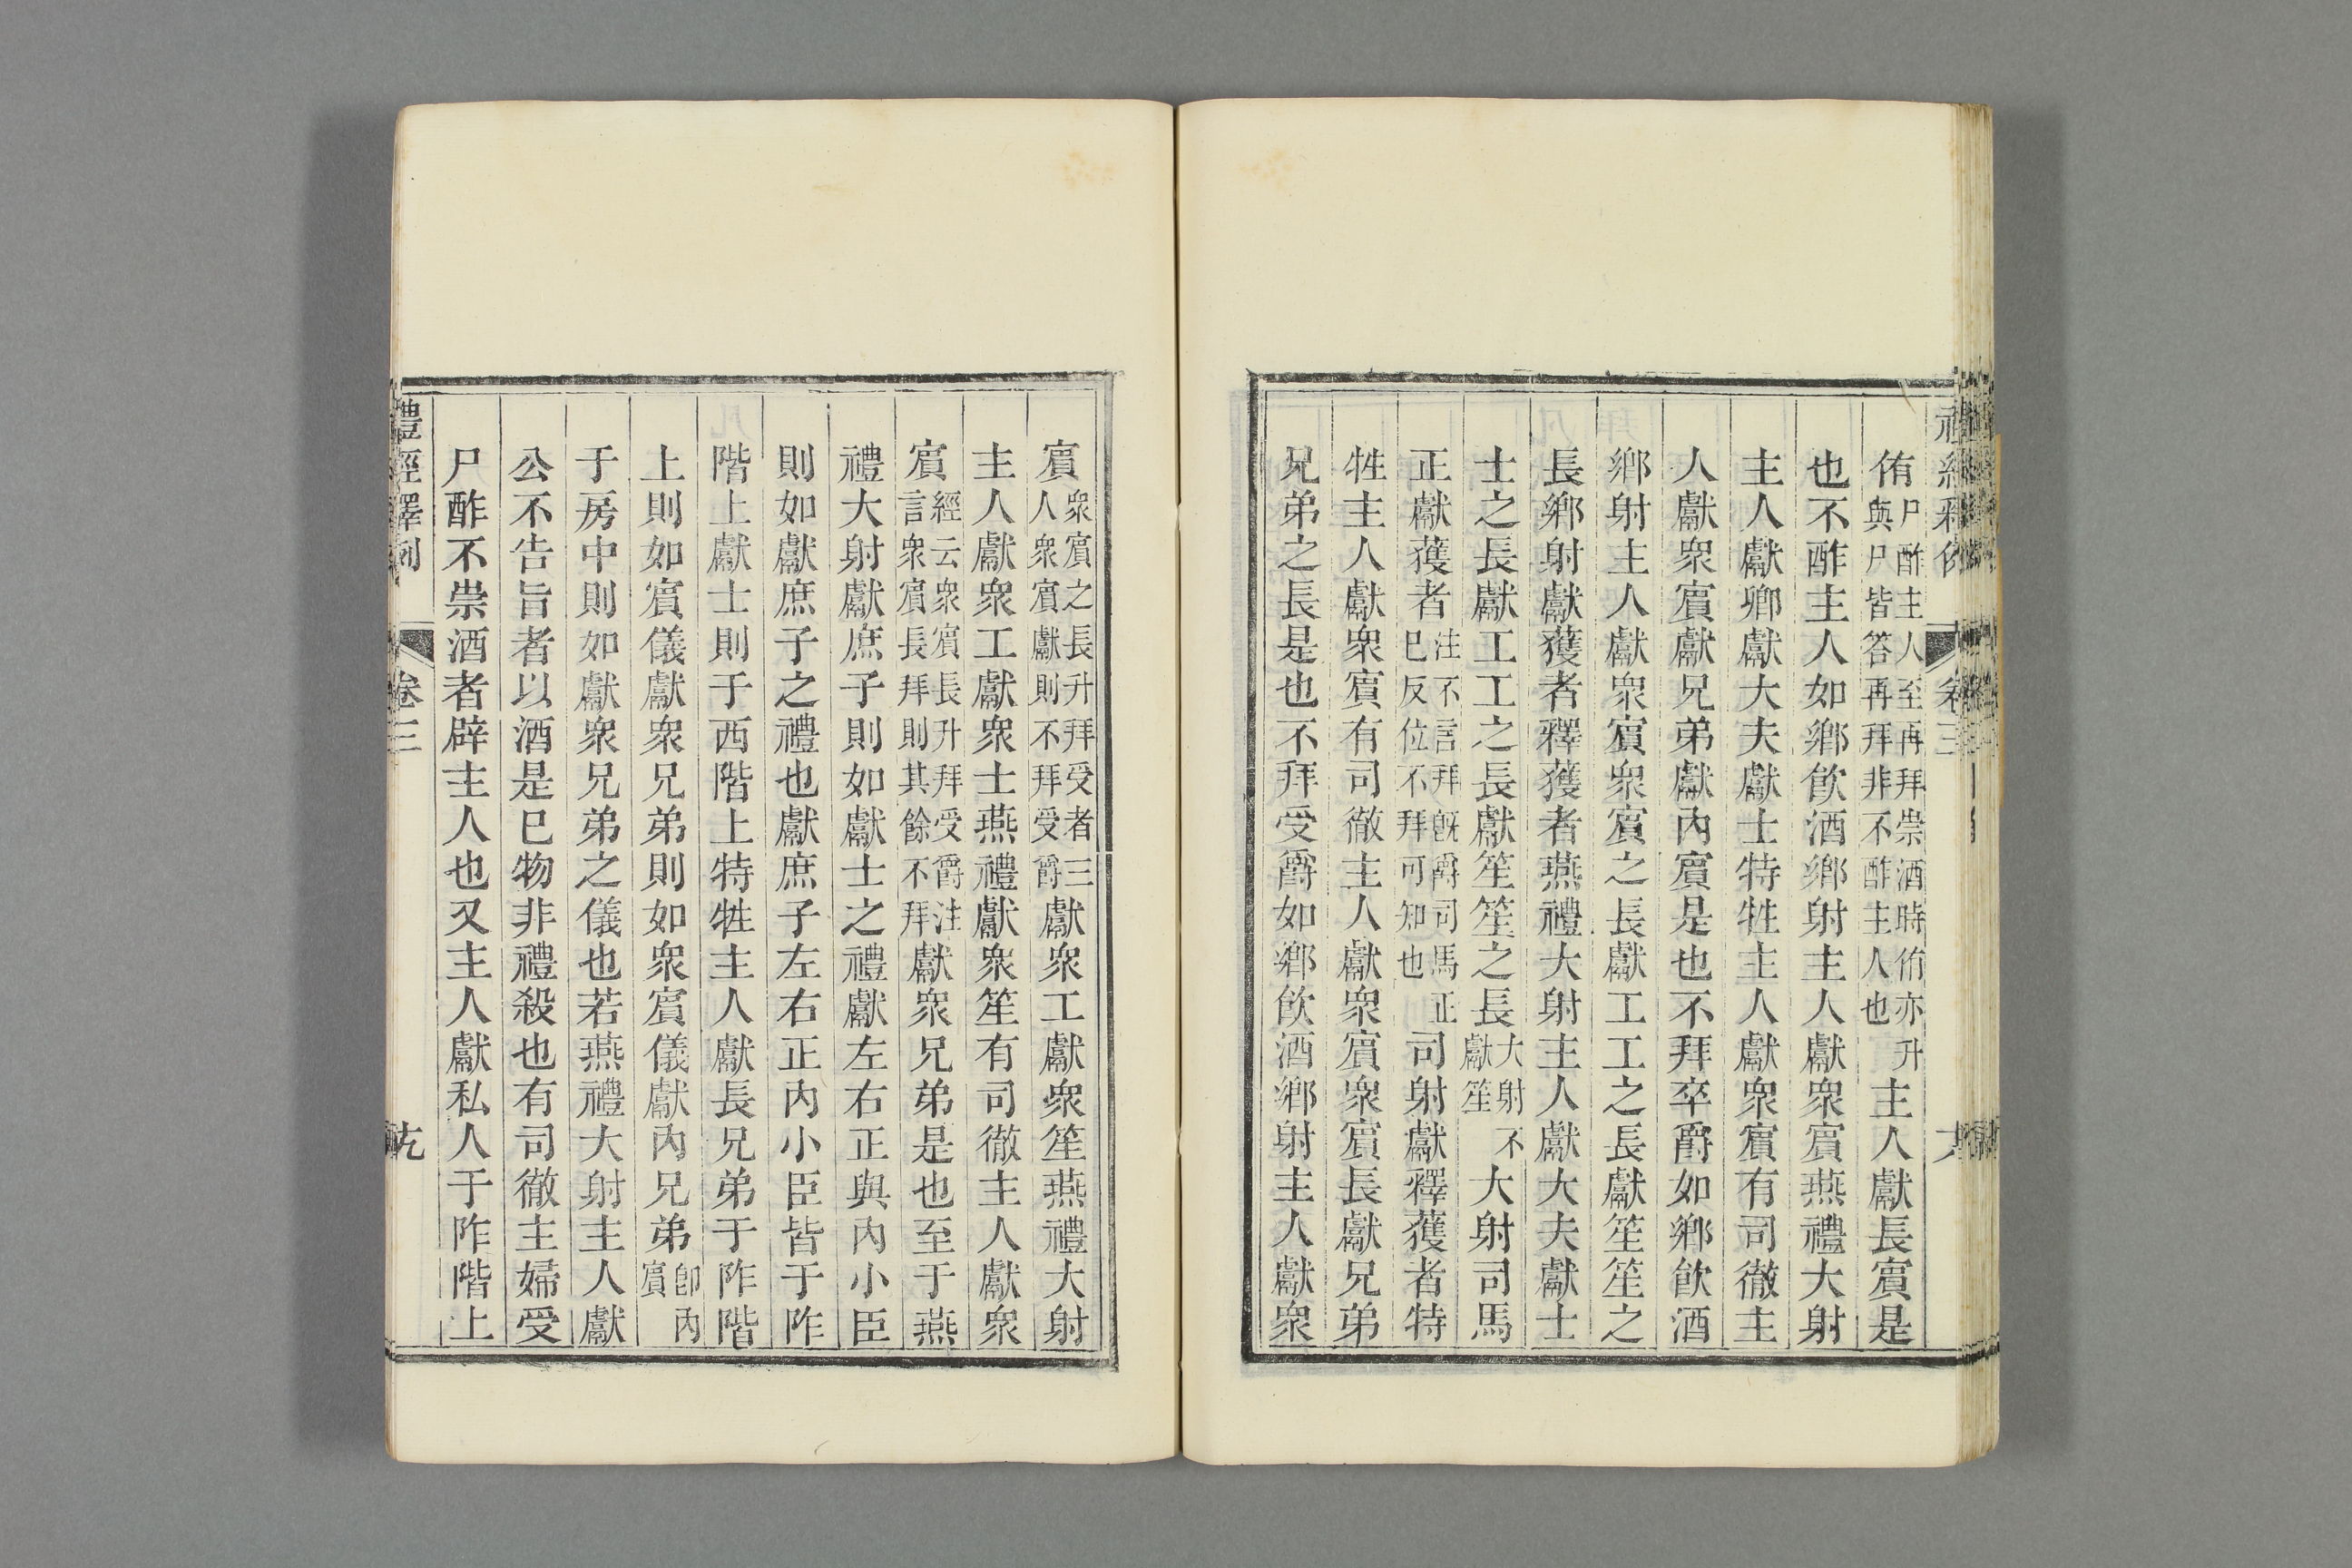 禮經釋例 卷三
侑尸酢主人至再拜崇酒時侑亦升與尸皆答再拜非不酢主人也主人獻長賓是
也不酢主人如鄉飲酒鄉射主人獻衆賓燕禮大射
主人獻卿獻大夫獻士特牲主人獻衆賓有司徹主
人獻衆賓獻兄弟獻內賓是也不拜卒爵如鄉飲酒
鄉射主人獻衆賓衆賓之長獻工工之長獻笙笙之
長鄉射獻獲者釋獲者燕禮大射主人獻大夫獻士
士之長獻工工之長獻笙笙之長大射不獻笙大射司馬
正獻獲者注不言拜旣爵司馬正已反位不拜可知也司射獻釋獲者特
牲主人獻衆賓有司徹主人獻衆賓衆賓長獻兄弟
兄弟之長是也不拜受爵如鄉飲酒鄉射主人獻衆
賓衆賓之長升拜受者三人衆賓獻則不拜受爵獻衆工獻衆笙燕禮大射
主人獻衆工獻衆士燕禮獻衆笙有司徹主人獻衆
賓經云衆賓長升拜受爵注言衆賓長拜則其餘不拜獻衆兄弟是也至于燕
禮大射獻庶子則如獻士之禮獻左右正與內小臣
則如獻庶子之禮也獻庶子左右正內小臣皆于阼
階上獻士則于西階上特牲主人獻長兄弟于阼階
上則如賓儀獻衆兄弟則如衆賓儀獻內兄弟卽內賓
于房中則如獻衆兄弟之儀也若燕禮大射主人獻
公不告旨者以酒是已物非禮殺也有司徹主婦受
尸酢不崇酒者辟主人也又主人獻私人于阼階上
禮經釋例 卷三